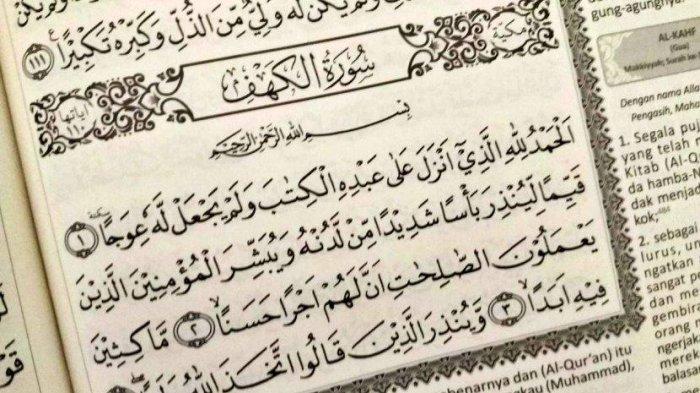 وَلَمْ يَكُنْ لَّهٗ وَلِيٌّ مِّنَ الذُّلِّ وَكَبِّرْهُ تَكْبِيْرًا ࣖ ١١١
مكية
سُوْرَةُ الْكَهْفِ
اٰيَاتُهَا ١١٠
بِسْمِ اللّٰهِ الرَّحْمٰنِ الرَّحِيْمِ
اَلْحَمْدُ لِلّٰهِ الَّذِيْٓ اَنْزَلَ عَلٰى عَبْدِهِ الْكِتٰبَ وَلَمْ يَجْعَلْ لَّهٗ عِوَجًا ۜ ١
قَيِّمًا لِّيُنْذِرَ بَأْسًا شَدِيْدًا مِّنْ لَّدُنْهُ وَيُبَشِّرَ الْمُؤْمِنِيْنَ الَّذِيْنَ
يَعْمَلُوْنَ الصّٰلِحٰتِ اَنَّ لَهُمْ اَجْرًا حَسَنًاۙ ٢ مَّاكِثِيْنَ
فِيْهِ اَبَدًاۙ ٣ وَّيُنْذِرَ الَّذِيْنَ قَالُوا اتَّخَذَ اللّٰهُ
gung-agungnya
AL-KAHF
(Gua)
Makkiyyah; Surah ke-
Dengan nama Alla
Pengasih, Maha
1. Segala puj
yang telah m
Kitab (Al-Q
da hamba-N
dak menja
kok;⁴⁸⁴
2. sebagai
lurus, u
ngatkan
sangat p
dan me
gembir
orang
ngerjak
mere
balasa
benarnya dan (Al-Qur'an) itu
gkau (Muhammad),